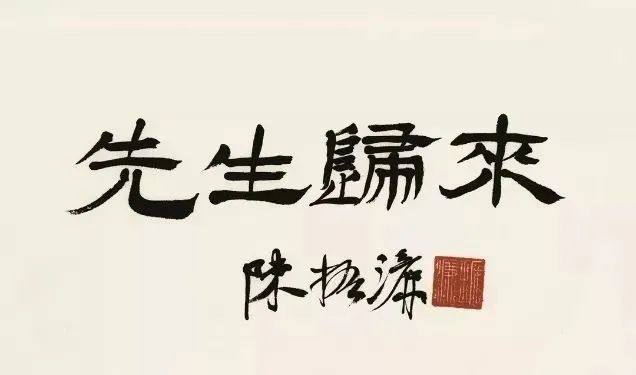 先生歸來
陳振濂